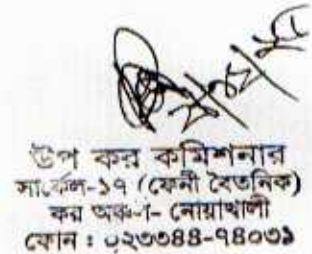 উপ কর কমিশনার
সার্কেল-১৭ (ফেনী বৈতনিক)
কর অঞ্চল- নোয়াখালী
ফোন : ০২৩৩৪৪-৭৪০৩১